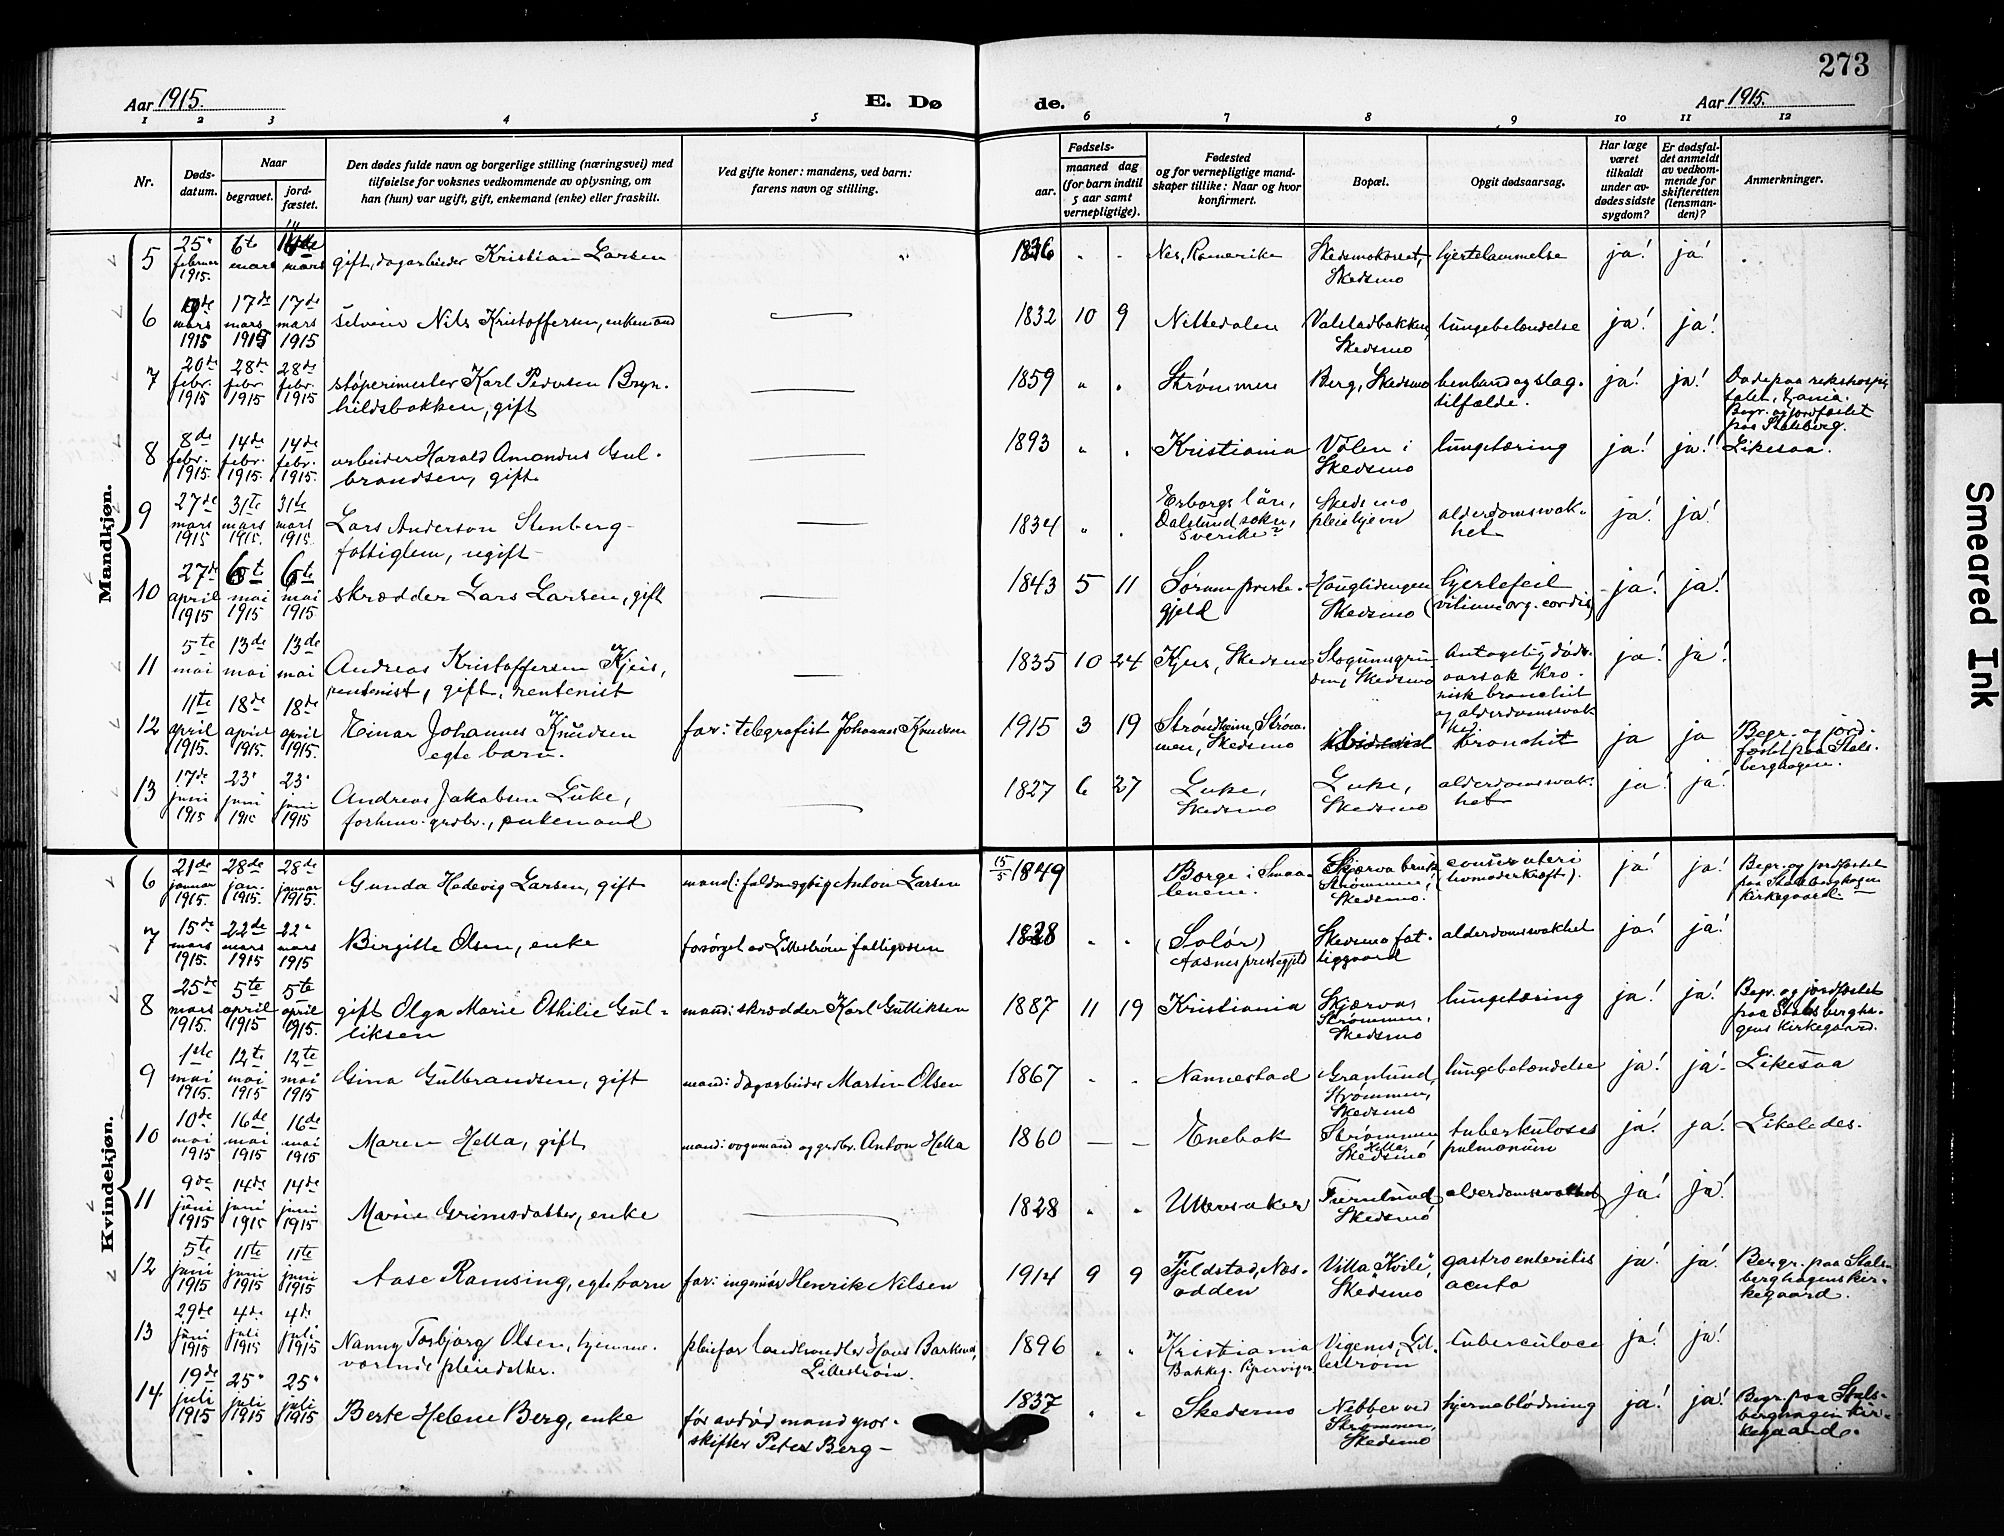 273
Aar 1915.
E. Dø
de.
Aar 1915.
1 2 3 4 5 6 7 8 9 10 11 12
Nr.
Døds-
datum.
Naar
begravet.
jord-
fæstet.
Den dødes fulde navn og borgerlige stilling (næringsvei) med
tilføielse for voksnes vedkommende av oplysning, om
han (hun) var ugift, gift, enkemand (enke) eller fraskilt.
Ved gifte koner: mandens, ved barn:
farens navn og stilling.
Fødsels-
aar.
maaned dag
(for barn indtil
5 aar samt
vernepligtige).
Fødested
og for vernepligtige mand-
skaper tillike: Naar og hvor
konfirmert.
Bopæl.
Opgit dødsaarsag.
Har læge
været
tilkaldt
under av-
dødes sidste
sygdom?
Er dødsfal-
det anmeldt
av vedkom-
mende for
skifteretten
(lensman-
den)?
Anmerkninger.
Mandkjøn.
5 25' februar 1915. 6te mars mars gift, dagarbeider Kristian Larsen 1836 Nes, Romerike Skedsmokorset, Skedsmo hjertelammelse ja! ja!
6 mars 1915 17de mars 1915 17de mars 1915 Nils Kristoffersen, enkemand 1832 10 9 Nittedalen Valstadbakken, Skedsmo lungebetændelse ja! ja!
7 20de febr. 1915 28de febr 1915 28de febr. 1915 støperimester Karl Pedersen Bryn-
hildsbakken, gift 1859 Strømmen Berg, Skedsmo benbrand og slag-
tilfælde. ja! ja! Døde paa rikshospi-
talet, Kr.ania.
Begr. og jordfæstet
paa Stalsberg.
8 8de febr. 1915. 14de febr. 1915. 14de febr. 1915. arbeider Harald Amandus Gul-
brandsen, gift 1893 Kristiania Volen i Skedsmo lungetæring ja! ja! Likesaa.
9 27de mars 1915 31te mars 1915. 31te mars 1915. Lars Anderson Stenberg
fattiglem, ugift 1834 Dalslund sokn, Sverike Skedsmo pleiehjem alderdomssvak-
het ja! ja!
10 27de april 1915 6te mai 1915 6te mai 1915 skrædder Lars Larsen, gift 1843 5 11 Sørum preste-
gjeld Hauglidengen Skedsmo hjertefeil
(vitium org. cordis) ja! ja!
11 5te mai 13de mai 13de mai Andreas Kristoffersen Kjeus,
rentenist, gift, rentenist 1835 10 24 Kjeus, Skedsmo Slogumsgrun-
den, Skedsmo Antagelig døds-
aarsak kro-
nisk bronchit
og alderdomssvak-
hed. ja! ja!
12 11te april 1915. 18de april 1915. 18de april 1915. Einar Johannes Knudsen
egte barn. far: telegrafist Johannes Knudsen 1915 3 19 Strandheim, Strøm-
men, Skedsmo bronchit ja ja Begr. og jord-
fæstet paa Stals-
berghagen.
13 17de juni 1915 23' juni 23' juni 1915 Andreas Jakobsen Luke,
forhenv. grdbr., enkemand 1827 6 27 Luke, Skedsmo Luke, Skedsmo alderdomssvak-
het ja! ja!
Kvindekjøn.
6 21de januar 1915. 28de jan. 1915. 28de januar 1915. Gunda Hedevig Larsen, gift mand: fuldmægtig Anton Larsen 15/5 1849 Borge i Smaa-
lenene. Skjærva bruk
Strømmen,
Skedsmo. ja! ja! Begr. og jordfæstet
paa Stalsberghagens
Kirkegaard.
7 15de mars 1915. 22de mars 1915 22' mars 1915 Birgitte Olsen, enke forsørget av Lillestrøm fattigvæsen 1828 (Solør)
Aasnes prestegjeld Skedsmo fat-
tiggaard alderdomssvakhet ja! ja!
8 25de mars 1915. 5te april 1915 5te april 1915. gift Olga Marie Othilie Gul-
liksen mand: skrædder Karl Gulliksen 1887 11 19 Kristiania Skjærva,
Strømmen,
Skedsmo lungetæring ja! ja! Begr. og jordfæstet
paa Stalsbergha-
gens Kirkegaard.
9 1ste mai 1915. 12te mai 1915 12te mai 1915 Gina Gulbrandsen, gift mand: dagarbeider Martin Olsen 1867 Nannestad Granlund,
Strømmen,
Skedsmo lungebetændelse ja! ja! Likesaa
10 10de mai 1915 16de mai 1915 16de mai 1915 Maren Hella, gift mand: vognmand og grdbr. Anton Hella 1860 — — Enebak Strømmen
Hella,
Skedsmo tuberkuloses
pulmonum ja! ja! Likeledes.
11 9de juni 1915 14de juni 1915 14de juni 1915 Marie Grimsdatter, enke 1828 Ullensaker Furulund Skedsmo alderdomssvakhet ja! ja!
12 5te juni 1915 11te juni 1915 11te juni 1915 Aase Ramsing, egte barn far: ingeniør Henrik Nilsen 1914 9 9 Fjeldstad, Næs-
odden Villa "Kvile",
Skedsmo gastroenteritis
acuta ja! ja! Bergr. paa Stals-
berghagens kir-
kegaard.
13 29de juni 1915 4de juli 1915 4de juli 1915 Nanny Torbjørg Olsen, hjemme-
værende pleiedatter. pleiefar landhandler Hans Barkned,
Lillestrøm. 1896 Kristiania
Bakkeg. Pipervigen Vigernes, Lil-
lestrøm tuberculose ja! ja!
14 19de juli 1915 25' juli 1915 25' juli 1915 Berte Helene Berg, enke før avdød mand spor-
skifter Peter Berg 1837 Skedsmo Nebber ved
Strømmen,
Skedsmo hjerneblødning ja! ja! Begr. paa Stals-
berghagen kir-
kegaard.
Smeared Ink